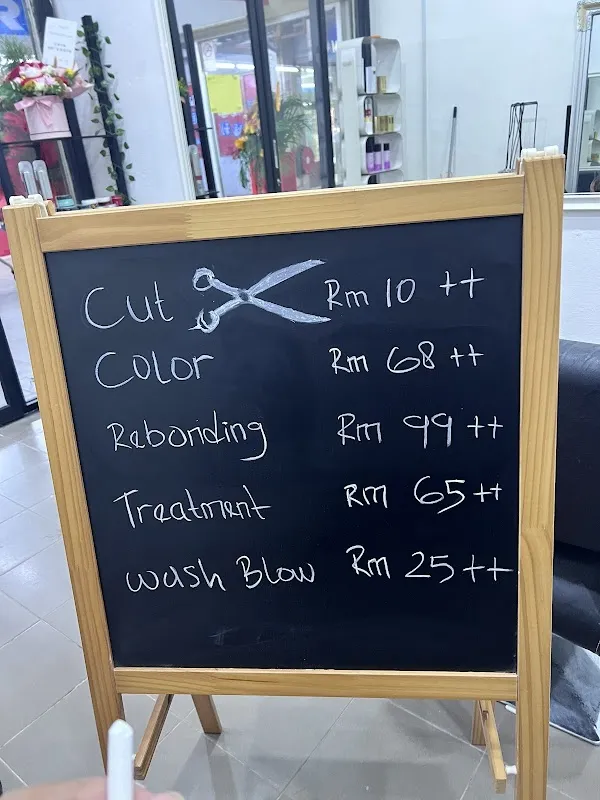 Cut Rm 10 ++
Color Rm 68 ++
Rebonding Rm 99 ++
Treatment Rm 65 ++
Wash Blow Rm 25 ++